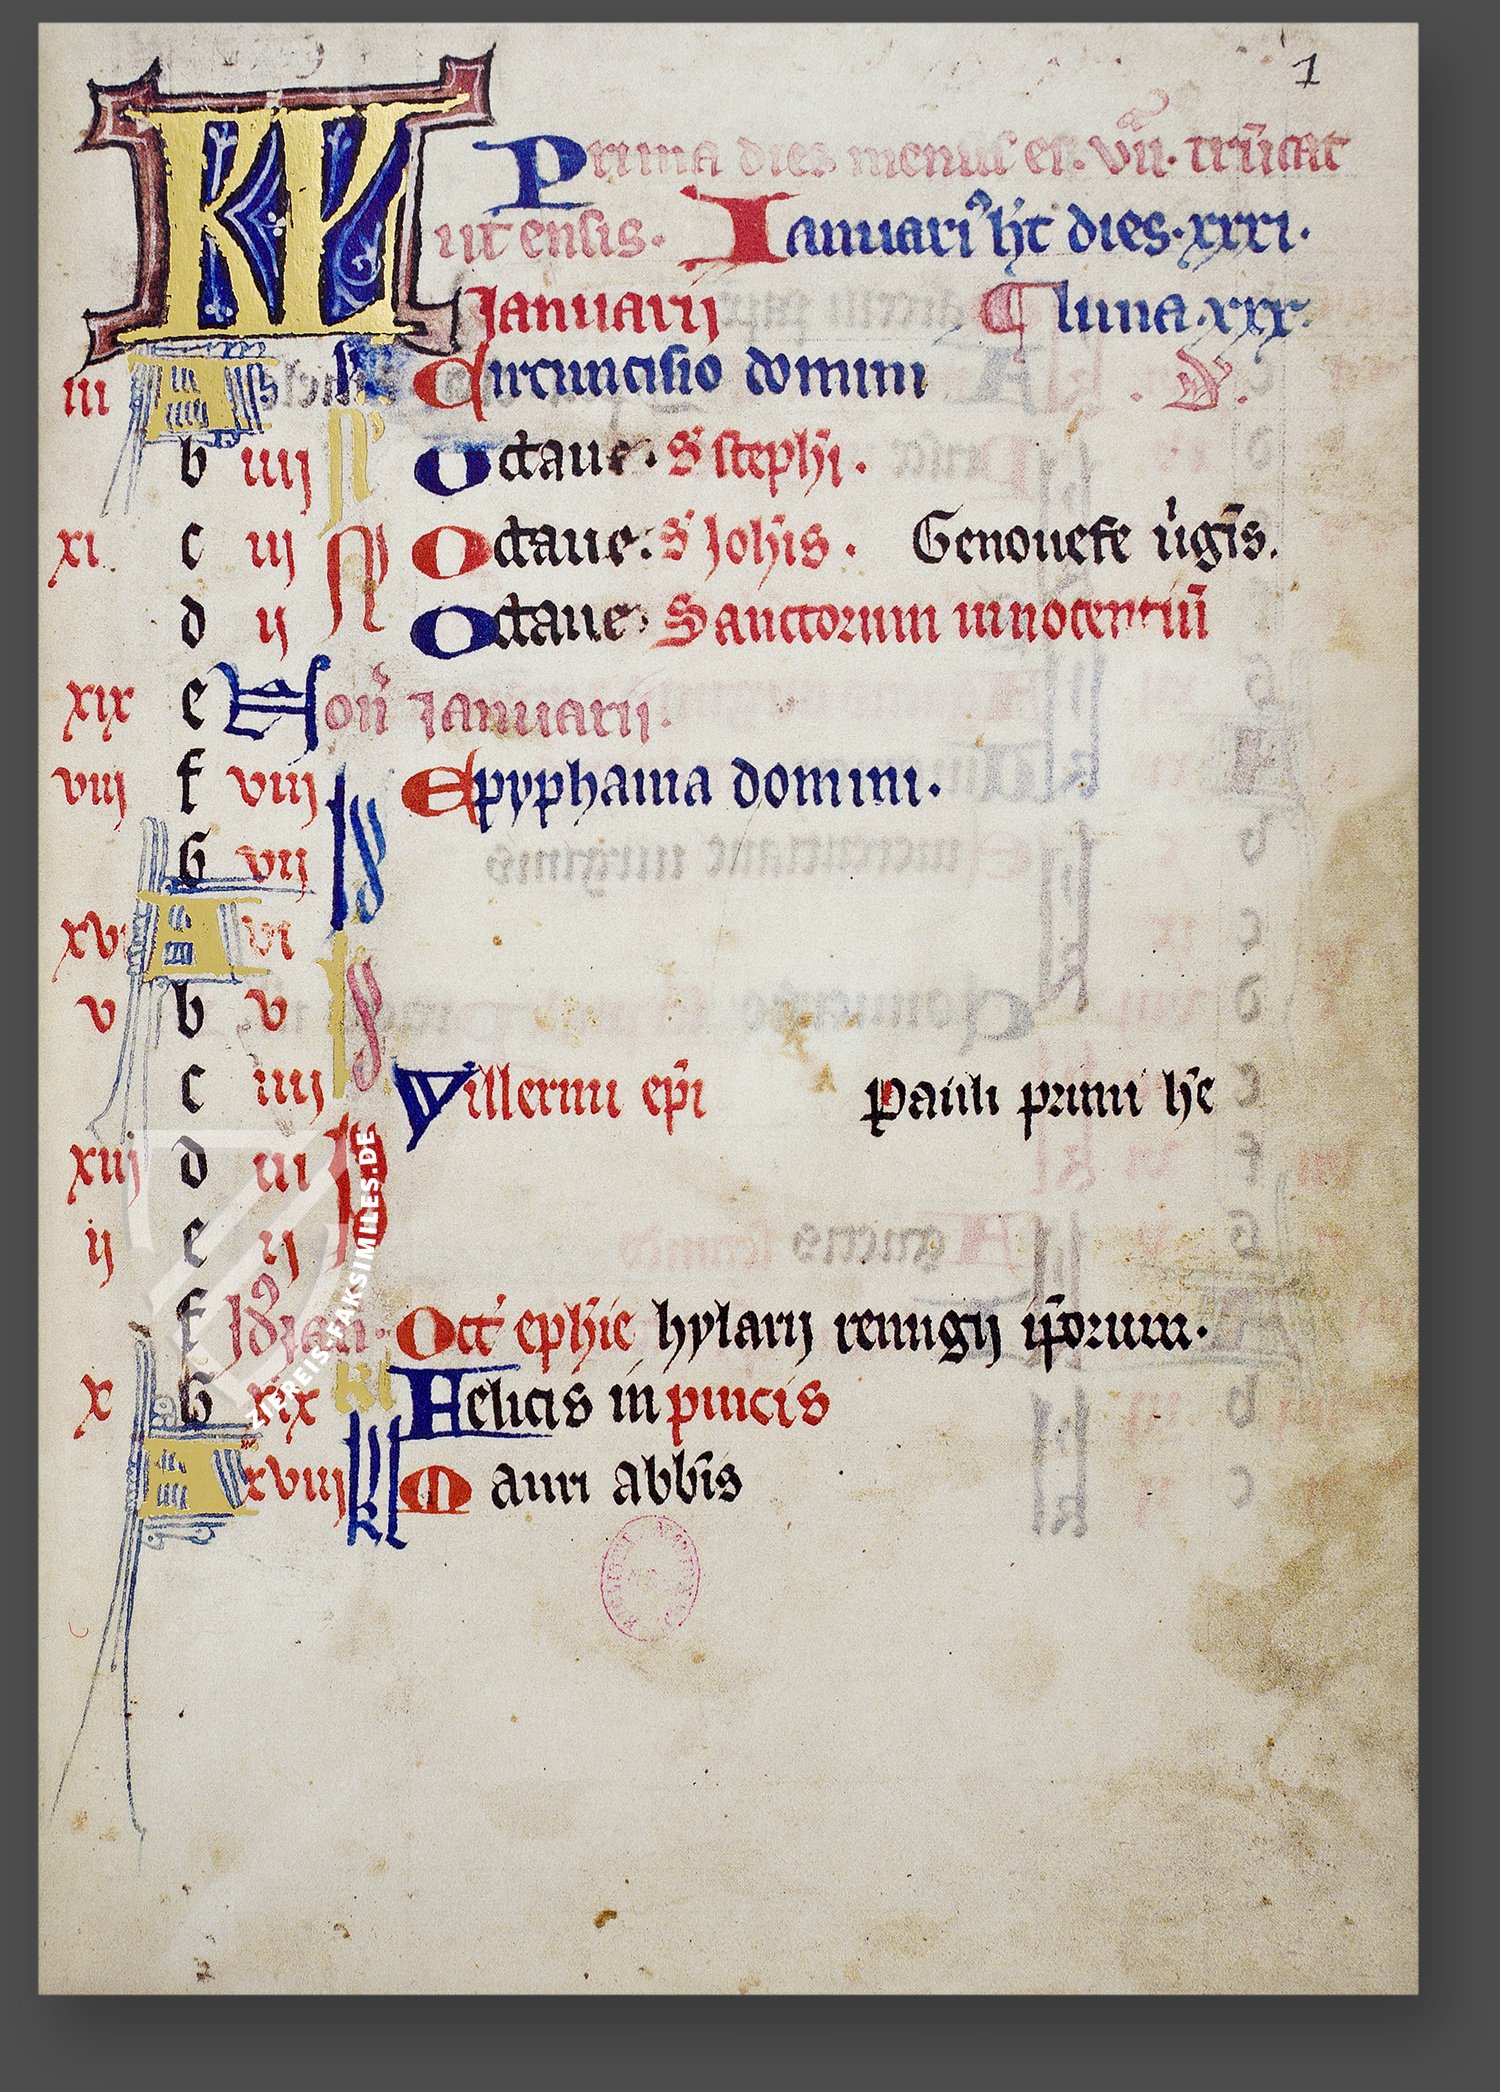 1
KL Prima dies mensis et. vii. trūcat
ut ensis. Ianuari9 ht dies. xxxi.
Januarij luna. xxx.
iii A Circuncisio domini . D.
b iiij N Octaue. S stephi.
xi. c iij N Octaue. S Johis. Genouefe uigis.
d ij N Octaue. Sanctorum innocentiū
xix e Non Januarij.
viij f viij Id Epyphania domini.
G vij
xvi A vi Id
v b v
c iiij Willermi epi Pauli primi he
xiij d iii Id
ij e ij
f Id9 jan. Oct' ephie hylarij remigij ip̄orum.
x G xix kl Felicis in pincis
A xviij kl Mauri abbis
ZIEREIS-FAKSIMILES.DE